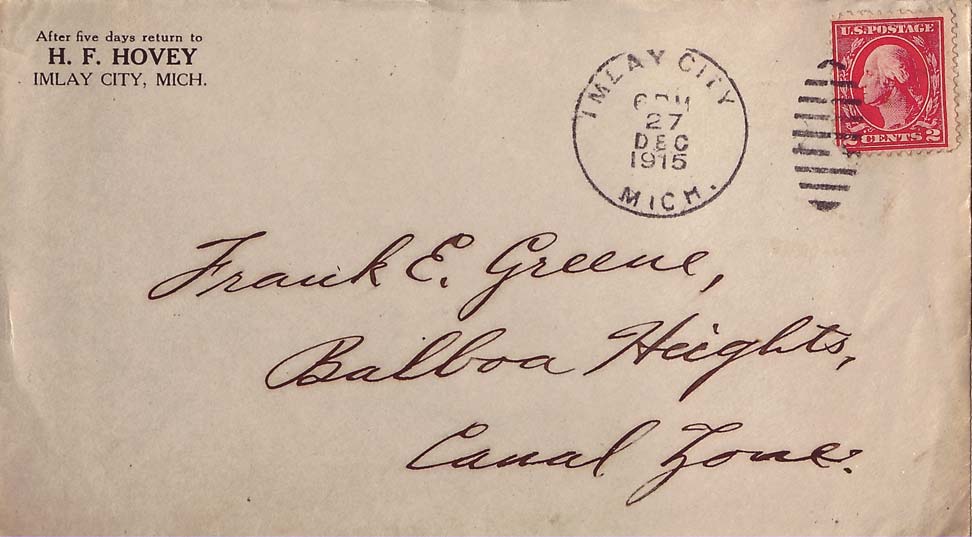 After five days return to
H. F. HOVEY
IMLAY CITY, MICH.
IMLAY CITY
6 PM
27
DEC
1915
MICH.
U.S. POSTAGE
2 CENTS 2
Frank E. Greene,
Balboa Heights,
Canal Zone.